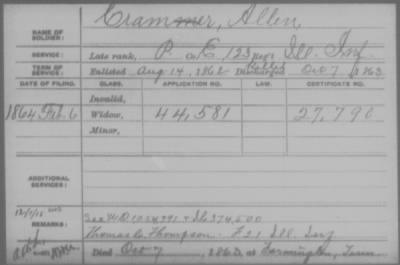 NAME OF SOLDIER: Crammer, Allen,
SERVICE: Late rank, P. Co. E, 123 Reg't Ill. Inf.
TERM OF SERVICE: Enlisted Aug 14, 1862 Discharged Killed Oct 7, 1863
DATE OF FILING. CLASS. APPLICATION NO. LAW. CERTIFICATE NO.
Invalid,
1864 Feb. 6 Widow, 44,581 27,790
Minor,
ADDITIONAL SERVICES:
REMARKS: See W.O.
Thomas B. Thompson. F 21 Ill. Inf
Died Oct 7, 1863, at Farmington, Tenn.